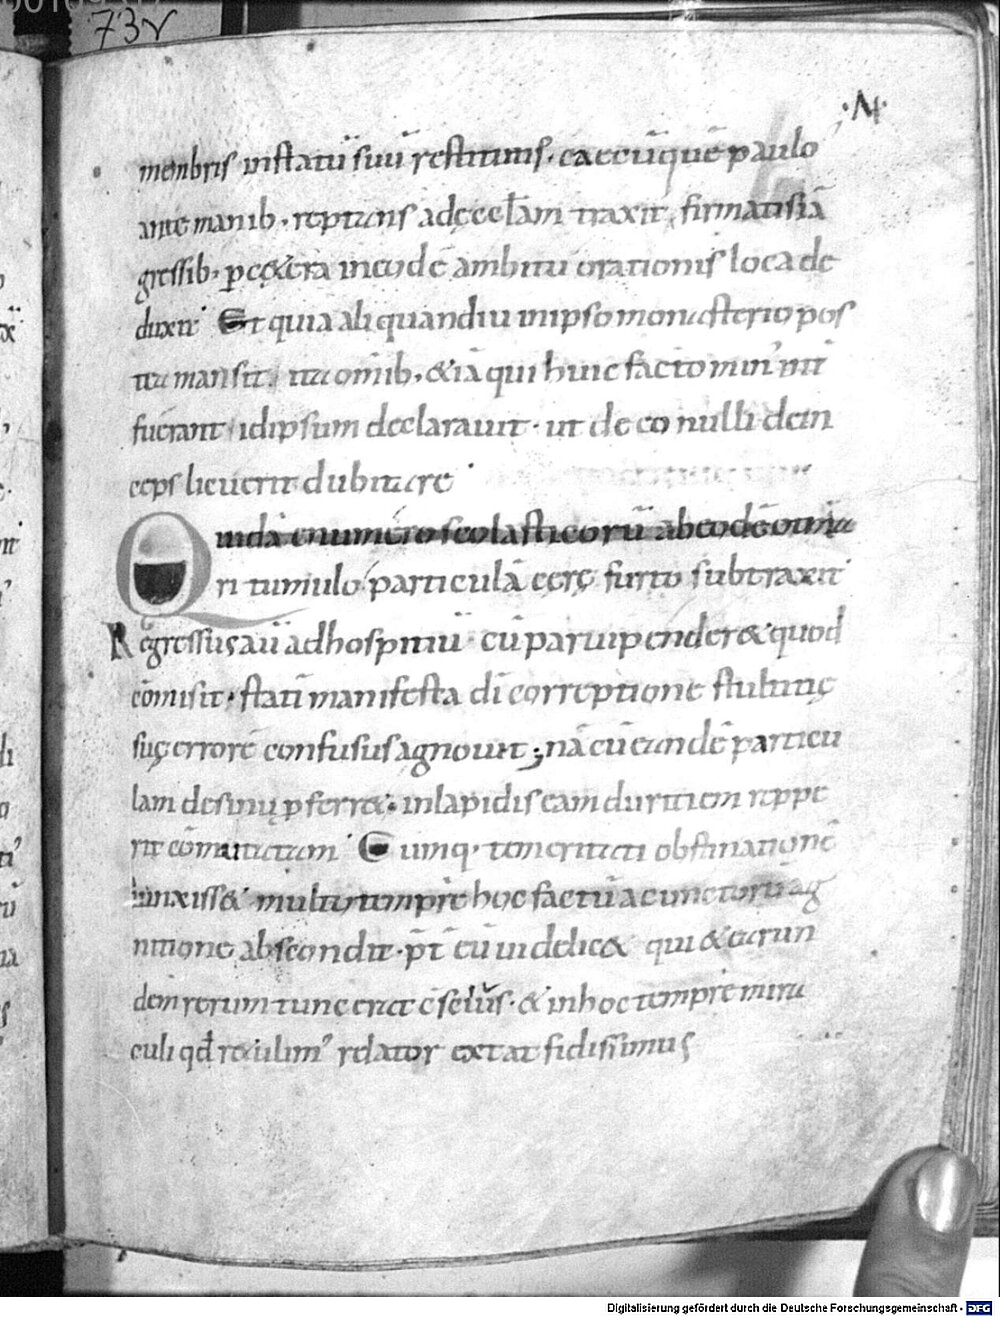 73v
·N·
menbris instatū suū restitutus· eaecūque paulo
ante manib· reptans adęcclam traxit, firmatis iā
gressib· p cęt̄era incude ambitu orationis loca de
duxit· Et quia aliquandiu in ipso monasterio pos
tea mansit· ita omib· & iā qui huic facto min' int̄
fuerant idipsum declarauit· ut de eo nulli dein
ceps licuerit dubitare·
Quidā enumero scolasticorū ab eodē
ri tumulo particulā cerę furto subtraxit·
Regressus aū ad hospitiū· cū paruipenderet quod
cōmisit· statī manifesta di correptione stultitię
suę errorē confusus agnouit; nā cū eandē particu
lam desinu pferret· in lapidis eam duritiem reppe
rit cōmutatam· Cumq· temeritati obstinationē
iunxisset· multo tempre hoc factū a cunctorū ag
nitione abscondit· pt̄ eū uidelicet qui & earun
dem rerum tunc erat cōscius· & in hoc tempre mira
culi qd retulim' relator extat fidissimus
Digitalisierung gefördert durch die Deutsche Forschungsgemeinschaft - DFG